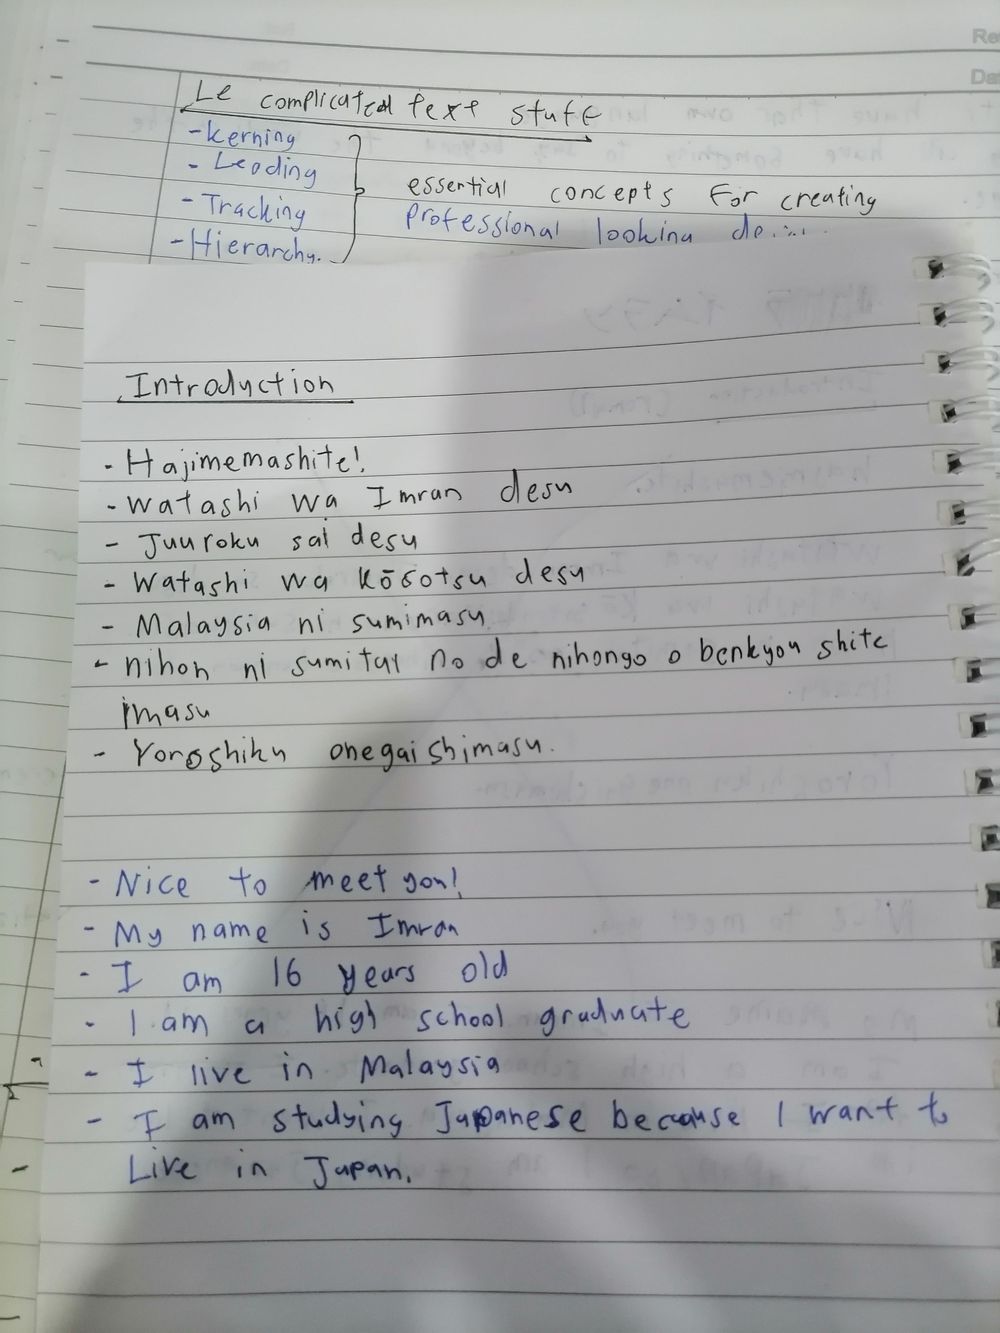 Re
Da
Le complicated text stuff
- Kerning
- Leading
- Tracking
- Hierarchy.
essential concepts for creating
professional looking
Introduction
- Hajimemashite!
- Watashi wa Imran desu
- Juuroku sai desu
- Watashi wa kōsotsu desu
- Malaysia ni sumimasu
- nihon ni sumitai no de nihongo o benkyou shite
imasu
- Yoroshiku onegaishimasu.
- Nice to meet you!
- My name is Imran
- I am 16 years old
- I am a high school graduate
- I live in Malaysia
- I am studying Japanese because I want to
Live in Japan.